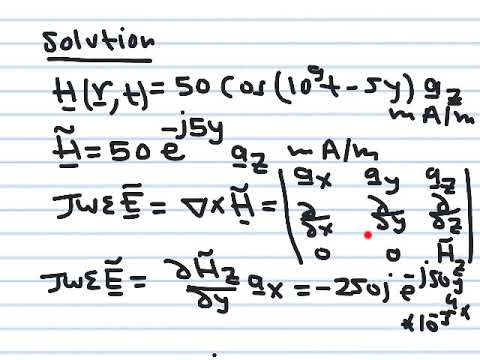 Solution
H(r,t) = 50 Cos(10⁹t - 5y) a_z
m A/m
H̃ = 50 e^-j5y a_z m A/m
Jωε Ẽ = ∇ × H̃ = | a_x a_y a_z
∂/∂x ∂/∂y ∂/∂z
0 0 H̃_z |
Jωε Ẽ = ∂H̃_z/∂y a_x = -250j e^-j50y